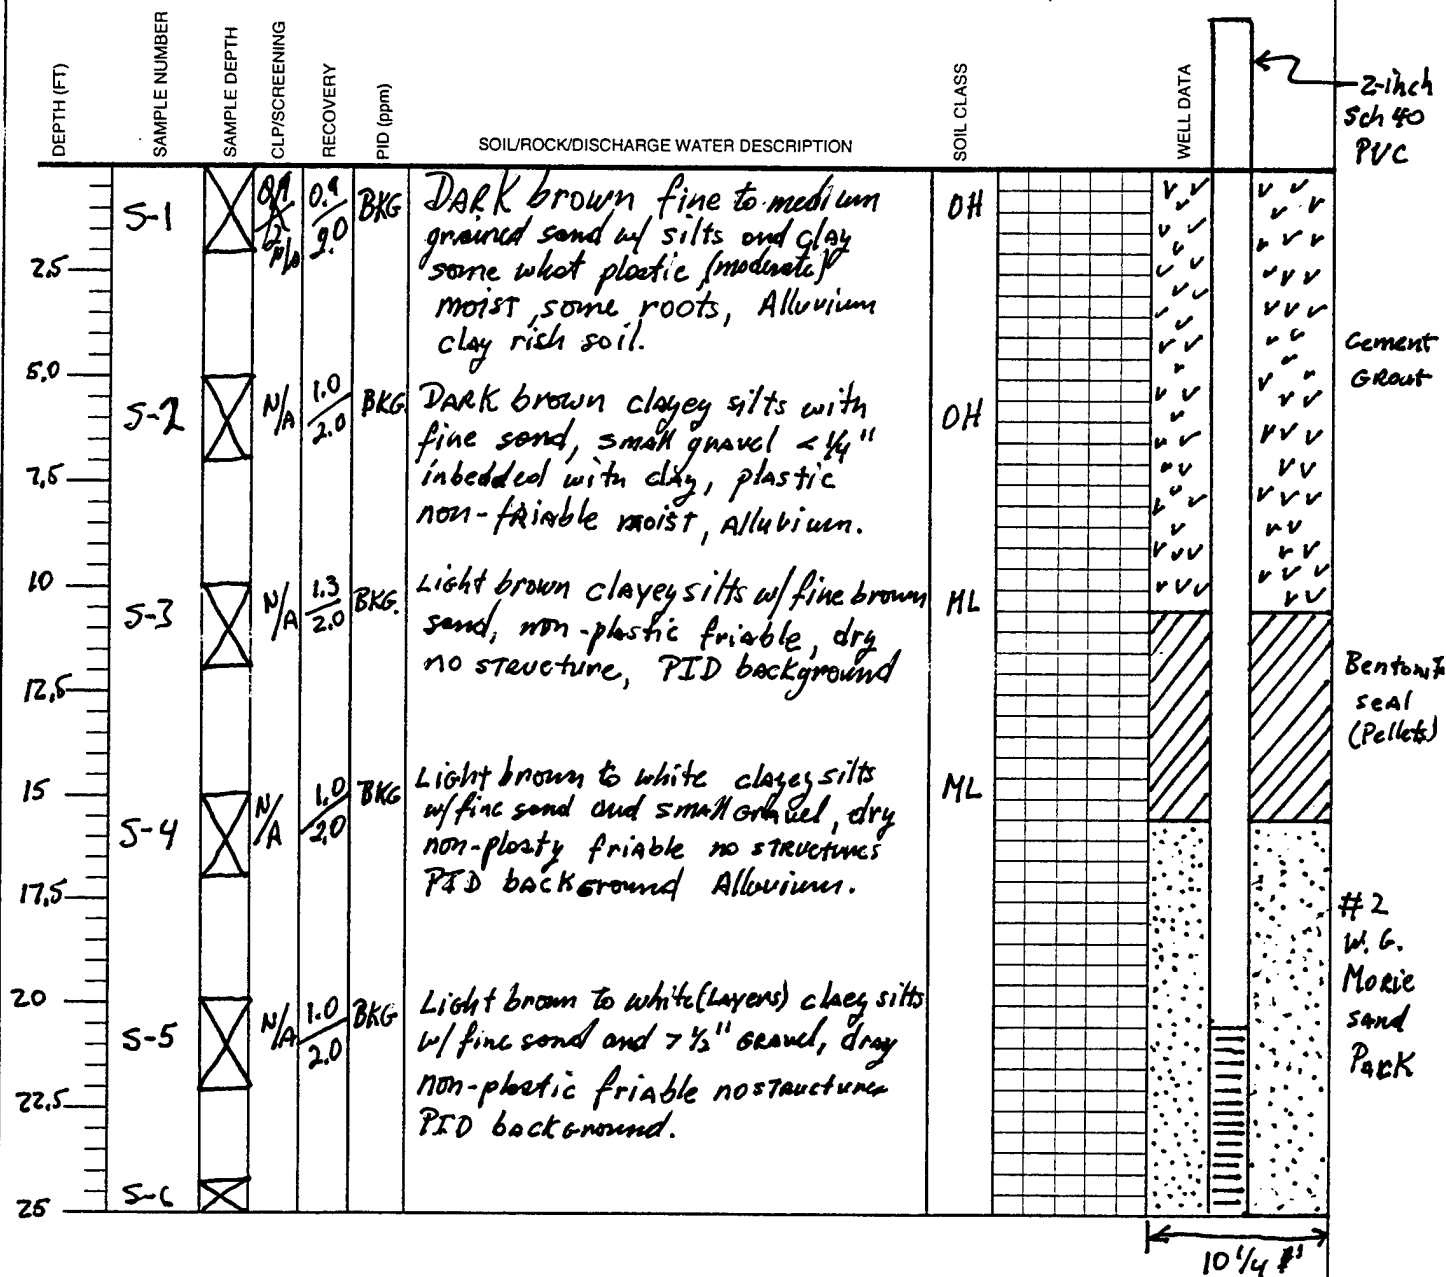 DEPTH (FT)
SAMPLE NUMBER
SAMPLE DEPTH
CLP/SCREENING
RECOVERY
PID (ppm)
SOIL/ROCK/DISCHARGE WATER DESCRIPTION
SOIL CLASS
WELL DATA
2-inch
Sch 40
PVC
S-1
N/A
0.9
2.0
BKG
DARK brown fine to medium
grained sand w/ silts and clay
some what plastic (moderate)
moist, some roots, Alluvium
clay rish soil.
OH
2.5
5.0
Cement
Grout
S-2
N/A
1.0
2.0
BKG.
DARK brown clayey silts with
fine sand, small gravel < 1/4"
inbedded with clay, plastic
non-friable moist, Alluvium.
OH
7.5
10
S-3
N/A
1.3
2.0
BKG.
Light brown clayey silts w/ fine brown
sand, non-plastic friable, dry
no structure, PID background
ML
12.5
seal
(Pellets)
15
S-4
N/A
1.0
2.0
BKG
Light brown to white clayey silts
w/ fine sand and small gravel, dry
non-plasty friable no structures
PID background Alluvium.
ML
17.5
#2
W.G.
Morie
sand
Pack
20
S-5
N/A
1.0
2.0
BKG
Light brown to white (Layers) claey silts
w/ fine sand and > 1/2" Gravel, dray
non-plastic friable no structures
PID background.
22.5
S-6
25
10 1/4